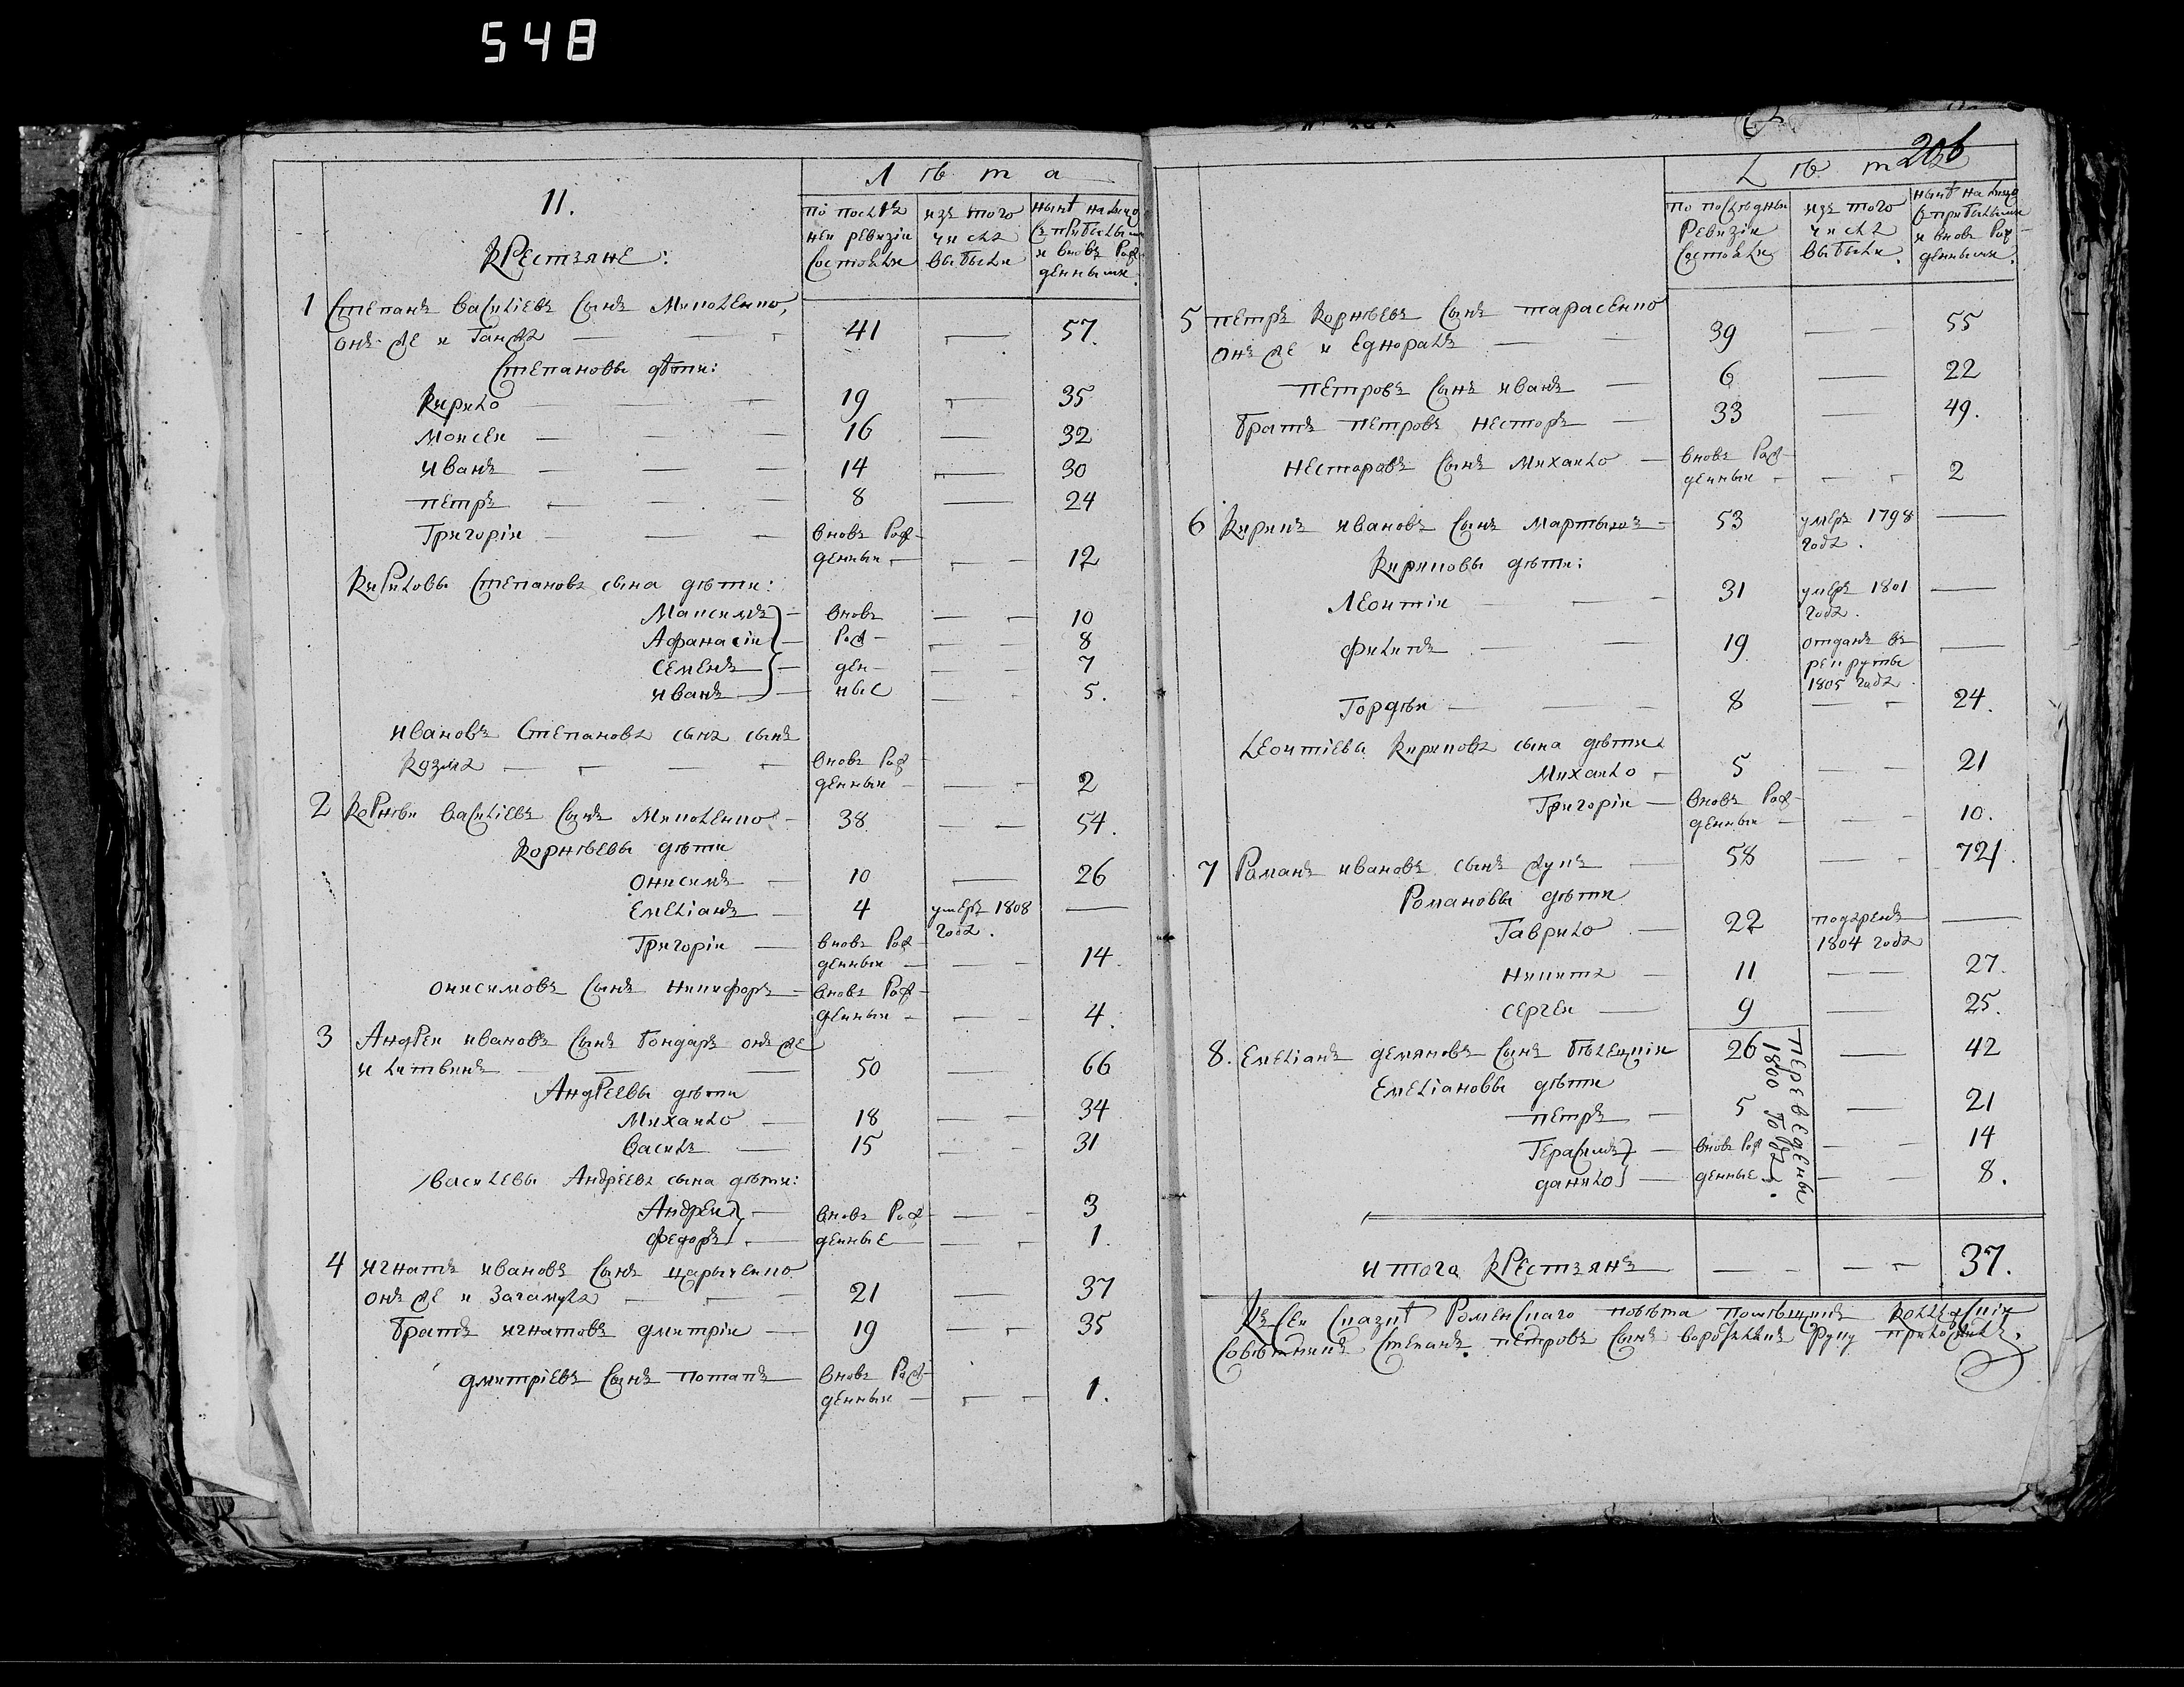 548
Лѣта
11.
по послѣд- изъ того нынѣ на лицо
ней ревизіи числа съ прибылыми
состояли выбыли и вновь рож-
денными.
Крестьяне:
1 Степанъ Василіевъ сынъ Миколенко,
онъ же и Ганжа — 41 — 57.
Степановы дѣти:
Кирило — 19 — 35
Моисей — 16 — 32
Иванъ — 14 — 30
Петръ — 8 — 24
Григорій — вновь рож-
денный — 12
Кириловы Степанова сына дѣти:
Максимъ — вновь — 10
Афанасій — рож- — 8
Семенъ — ден- — 7
Иванъ — ные — 5.
Ивановъ Степанова сына сынъ
Козма — вновь рож-
денный — 2
2 Корнѣй Василіевъ сынъ Миколенко — 38 — 54.
Корнѣевы дѣти
Онисимъ — 10 — 26
Емеліанъ — 4 умеръ 1808 —
года.
Григорій — вновь рож-
денный — 14.
Онисимовъ сынъ Никифоръ — вновь рож-
денный — 4.
3 Андрей Ивановъ сынъ Бондаръ онъ же
и Литвинъ — 50 — 66
Андреевы дѣти
Михайло — 18 — 34
Василь — 15 — 31
Василевы Андреева сына дѣти:
Андрей — вновь рож- — 3
Федоръ — денные — 1.
4 Игнатъ Ивановъ сынъ Царыченко
онъ же и Загамула — 21 — 37
Братъ Игнатовъ Дмитрій — 19 — 35
Дмитріевъ сынъ Потапъ — вновь рож-
денный — 1.
206
Лѣта
по послѣдней изъ того нынѣ на лицо
ревизіи числа съ прибылыми
состояли выбыли. и вновь рож-
денными.
5 Петръ Корнѣевъ сынъ Тарасенко
онъ же и Едноралъ — 39 — 55
Петровъ сынъ Иванъ — 6 — 22
Братъ Петровъ Несторъ — 33 — 49.
Несторовъ сынъ Михайло — вновь рож-
денный — 2
6 Кирикъ Ивановъ сынъ Мартыновъ — 53 умеръ 1798 —
года.
Кириковы дѣти:
Леонтій — 31 умеръ 1801 —
года.
Филипъ — 19 отданъ въ —
рекруты
1805 года
Гордѣй — 8 — 24.
Леонтіевы Кирикова сына дѣти
Михайло — 5 — 21
Григорій — вновь рож-
денный — 10.
7 Романъ Ивановъ сынъ Жукъ — 58 — 74.
Романовы дѣти
Гаврило — 22 —
1804 года
Никита — 11 — 27.
Сергей — 9 — 25.
8. Емеліанъ Демяновъ сынъ Бѣлецкій 26 — 42
Емеліановы дѣти
Петръ — 5 — 21
Герасимъ — вновь рож — 14
Данило — денные — 8.
переведены
1800 года.
Итого крестьянъ — 37.
Къ сей сказкѣ Роменскаго повѣта помѣщикъ коллежскій
совѣтникъ Степанъ Петровъ сынъ руку приложилъ.